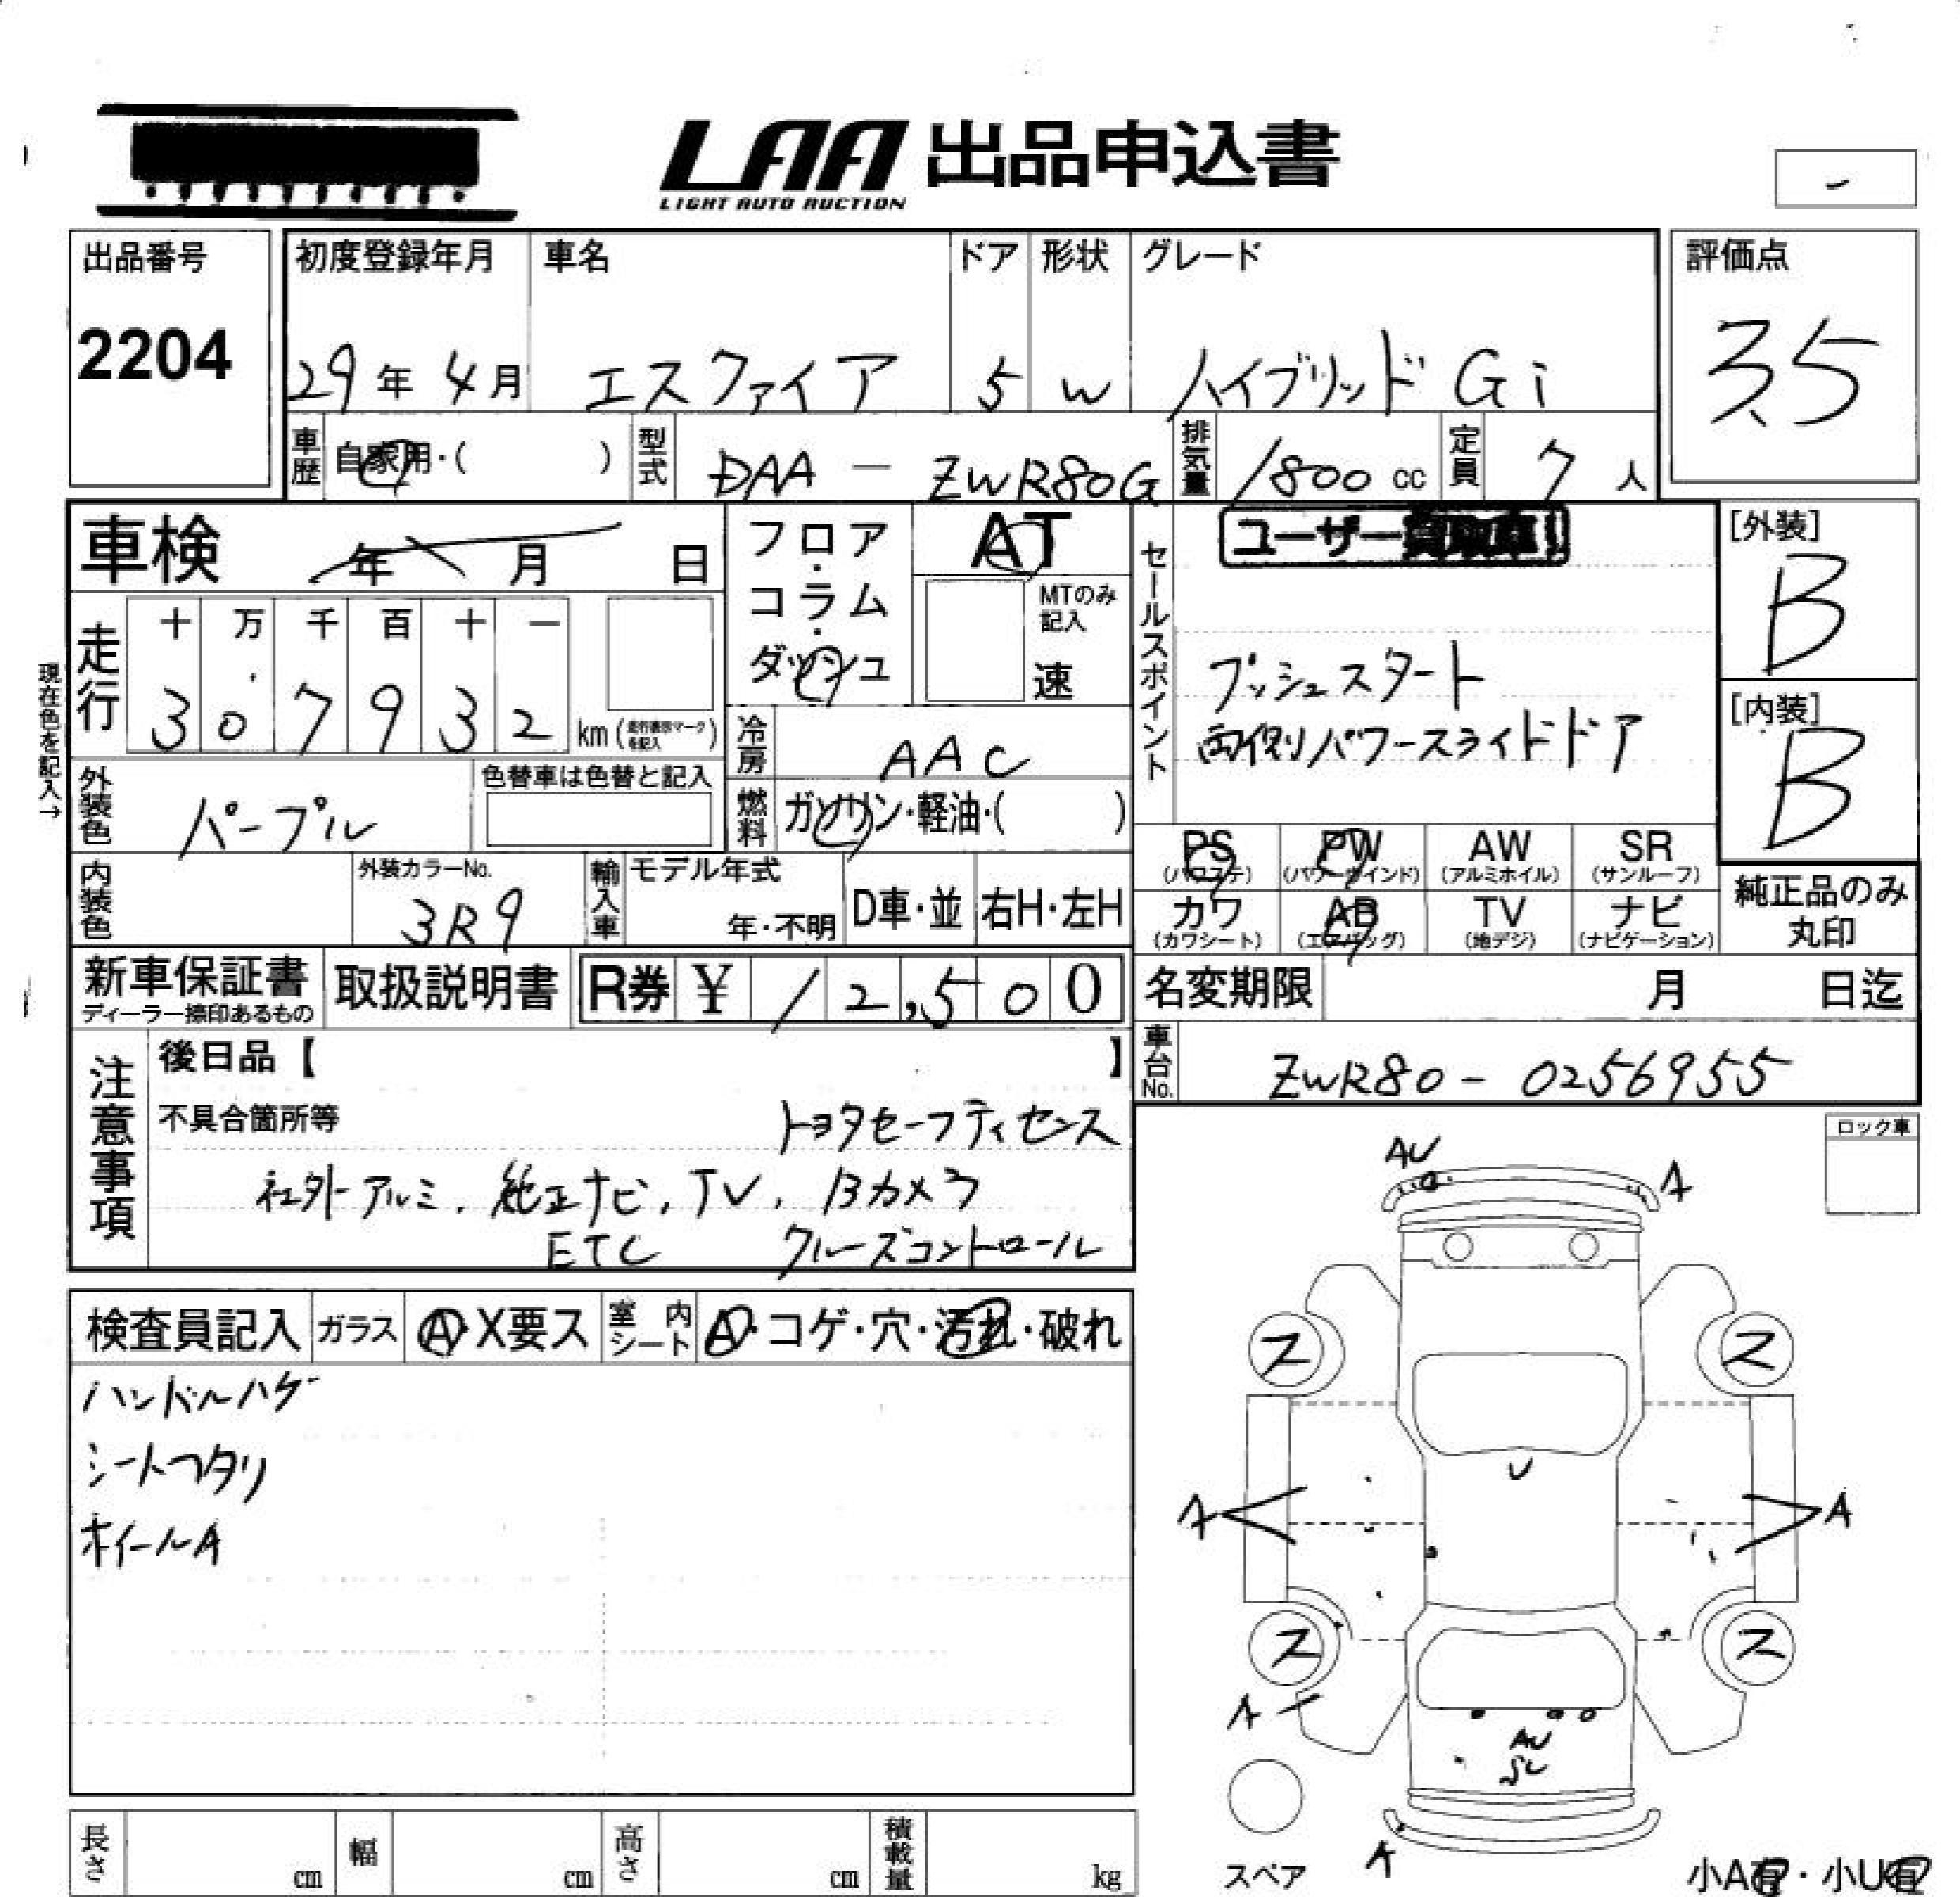 LAA 出品申込書
LIGHT AUTO AUCTION
-
出品番号 初度登録年月 車名 ドア 形状 グレード 評価点
2204 29年 4月 エスクァイア 5 W ハイブリッド Gi 3.5
車歴 自家用・( ) 型式 DAA - ZWR80G 排気量 1800 cc 定員 7 人
車検 年 月 日
フロア・コラム・ダッシュ
AT
MTのみ記入
速
セールスポイント
ユーザー買取車!!
プッシュスタート
両側パワースライドドア
[外装]
B
[内装]
B
現在色を記入→
走行 十 万 千 百 十 一
3 0 7 9 3 2 km (走行表示マークを記入)
冷房 AAC
外装色 パープル 色替車は色替と記入
燃料 ガソリン・軽油・( )
PS (パワステ) PW (パワーウインド) AW (アルミホイル) SR (サンルーフ)
カワ (カワシート) AB (エアバッグ) TV (地デジ) ナビ (ナビゲーション)
純正品のみ
丸印
内装色 外装カラーNo. 3R9 輸入車 モデル年式 年・不明 D車・並 右H・左H
新車保証書 取扱説明書 R券 ¥ 12,500 名変期限 月 日迄
ディーラー捺印あるもの
車台No. ZWR80 - 0256955
注意事項
後日品【 】
不具合箇所等 トヨタセーフティセンス
社外アルミ, 純正ナビ, TV, Bカメラ
ETC クルーズコントロール
ロック車
検査員記入 ガラス A・X要ス 室内シート A・コゲ・穴・汚れ・破れ
ハンドルハゲ
シートヘタリ
ホイールA
AU A
ス ス
U
A A
ス ス
A
AU
A
スペア
長さ cm 幅 cm 高さ cm 積載量 kg
小A有・小U有